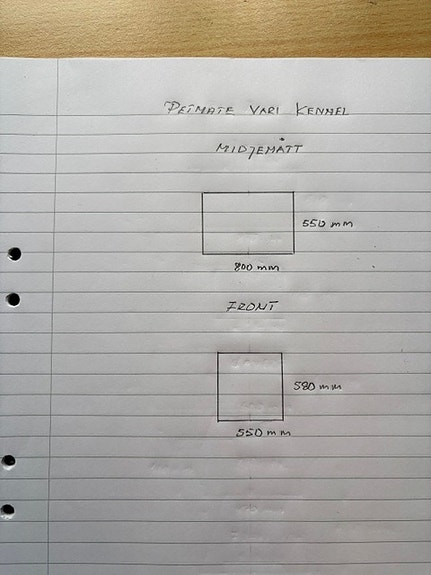 PETMATE VARI KENNEL
MIDJEMÅTT
550 mm
800 mm
FRONT
580 mm
550 mm